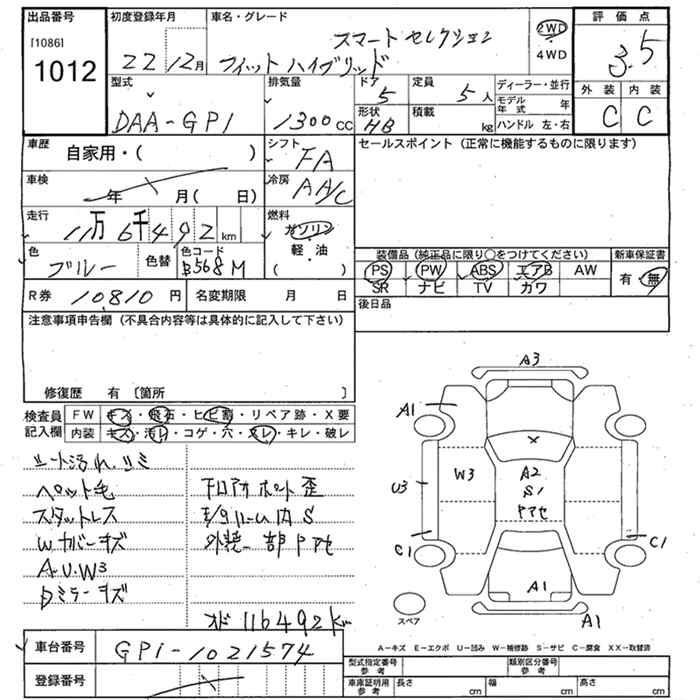 出品番号
[1086]
1012
初度登録年月
22 12月
車名・グレード
スマートセレクション
フィットハイブリッド
2WD
4WD
評価点
3.5
外装 内装
C C
型式
DAA-GP1
排気量
1300 CC
ドア
5
形状
HB
定員
5人
積載
kg
ディーラー・並行
モデル年式 年
ハンドル 左・右
車歴
自家用・( )
シフト
FA
車検
年 月( 日)
冷房
AA/C
走行
11万6千492 km
燃料
ガソリン
軽・油
( )
色
ブルー
色替
色コード
B568M
R券 10,810 円
名変期限 月 日
セールスポイント (正常に機能するものに限ります)
装備品 (純正品に限り○をつけてください)
新車保証書
PS PW ABS エアB AW
SR ナビ TV カワ
有・無
後日品
注意事項申告欄 (不具合内容等は具体的に記入して下さい)
修復歴 有 〔箇所 〕
検査員記入欄
FW キズ・飛石・ヒビ割・リペア跡・X要
内装 キズ・汚レ・コゲ・穴・スレ・キレ・破レ
シート汚れ、シミ
ペット毛
スタットレス
Wカバーキズ
A.U.W3
Dミラーキズ
外装一部ドアセ
メーター 116492km
車台番号
GP1-1021574
登録番号
A3
A1
U3
W3
A2
S1
C1
C1
A1
A1
スペア
A-キズ E-エクボ U-凹み W-補修跡 S-サビ C-腐食 XX-取替済
型式指定番号
参考
類別区分番号
参考
車庫証明用
参考
長さ cm
幅 cm
高さ cm